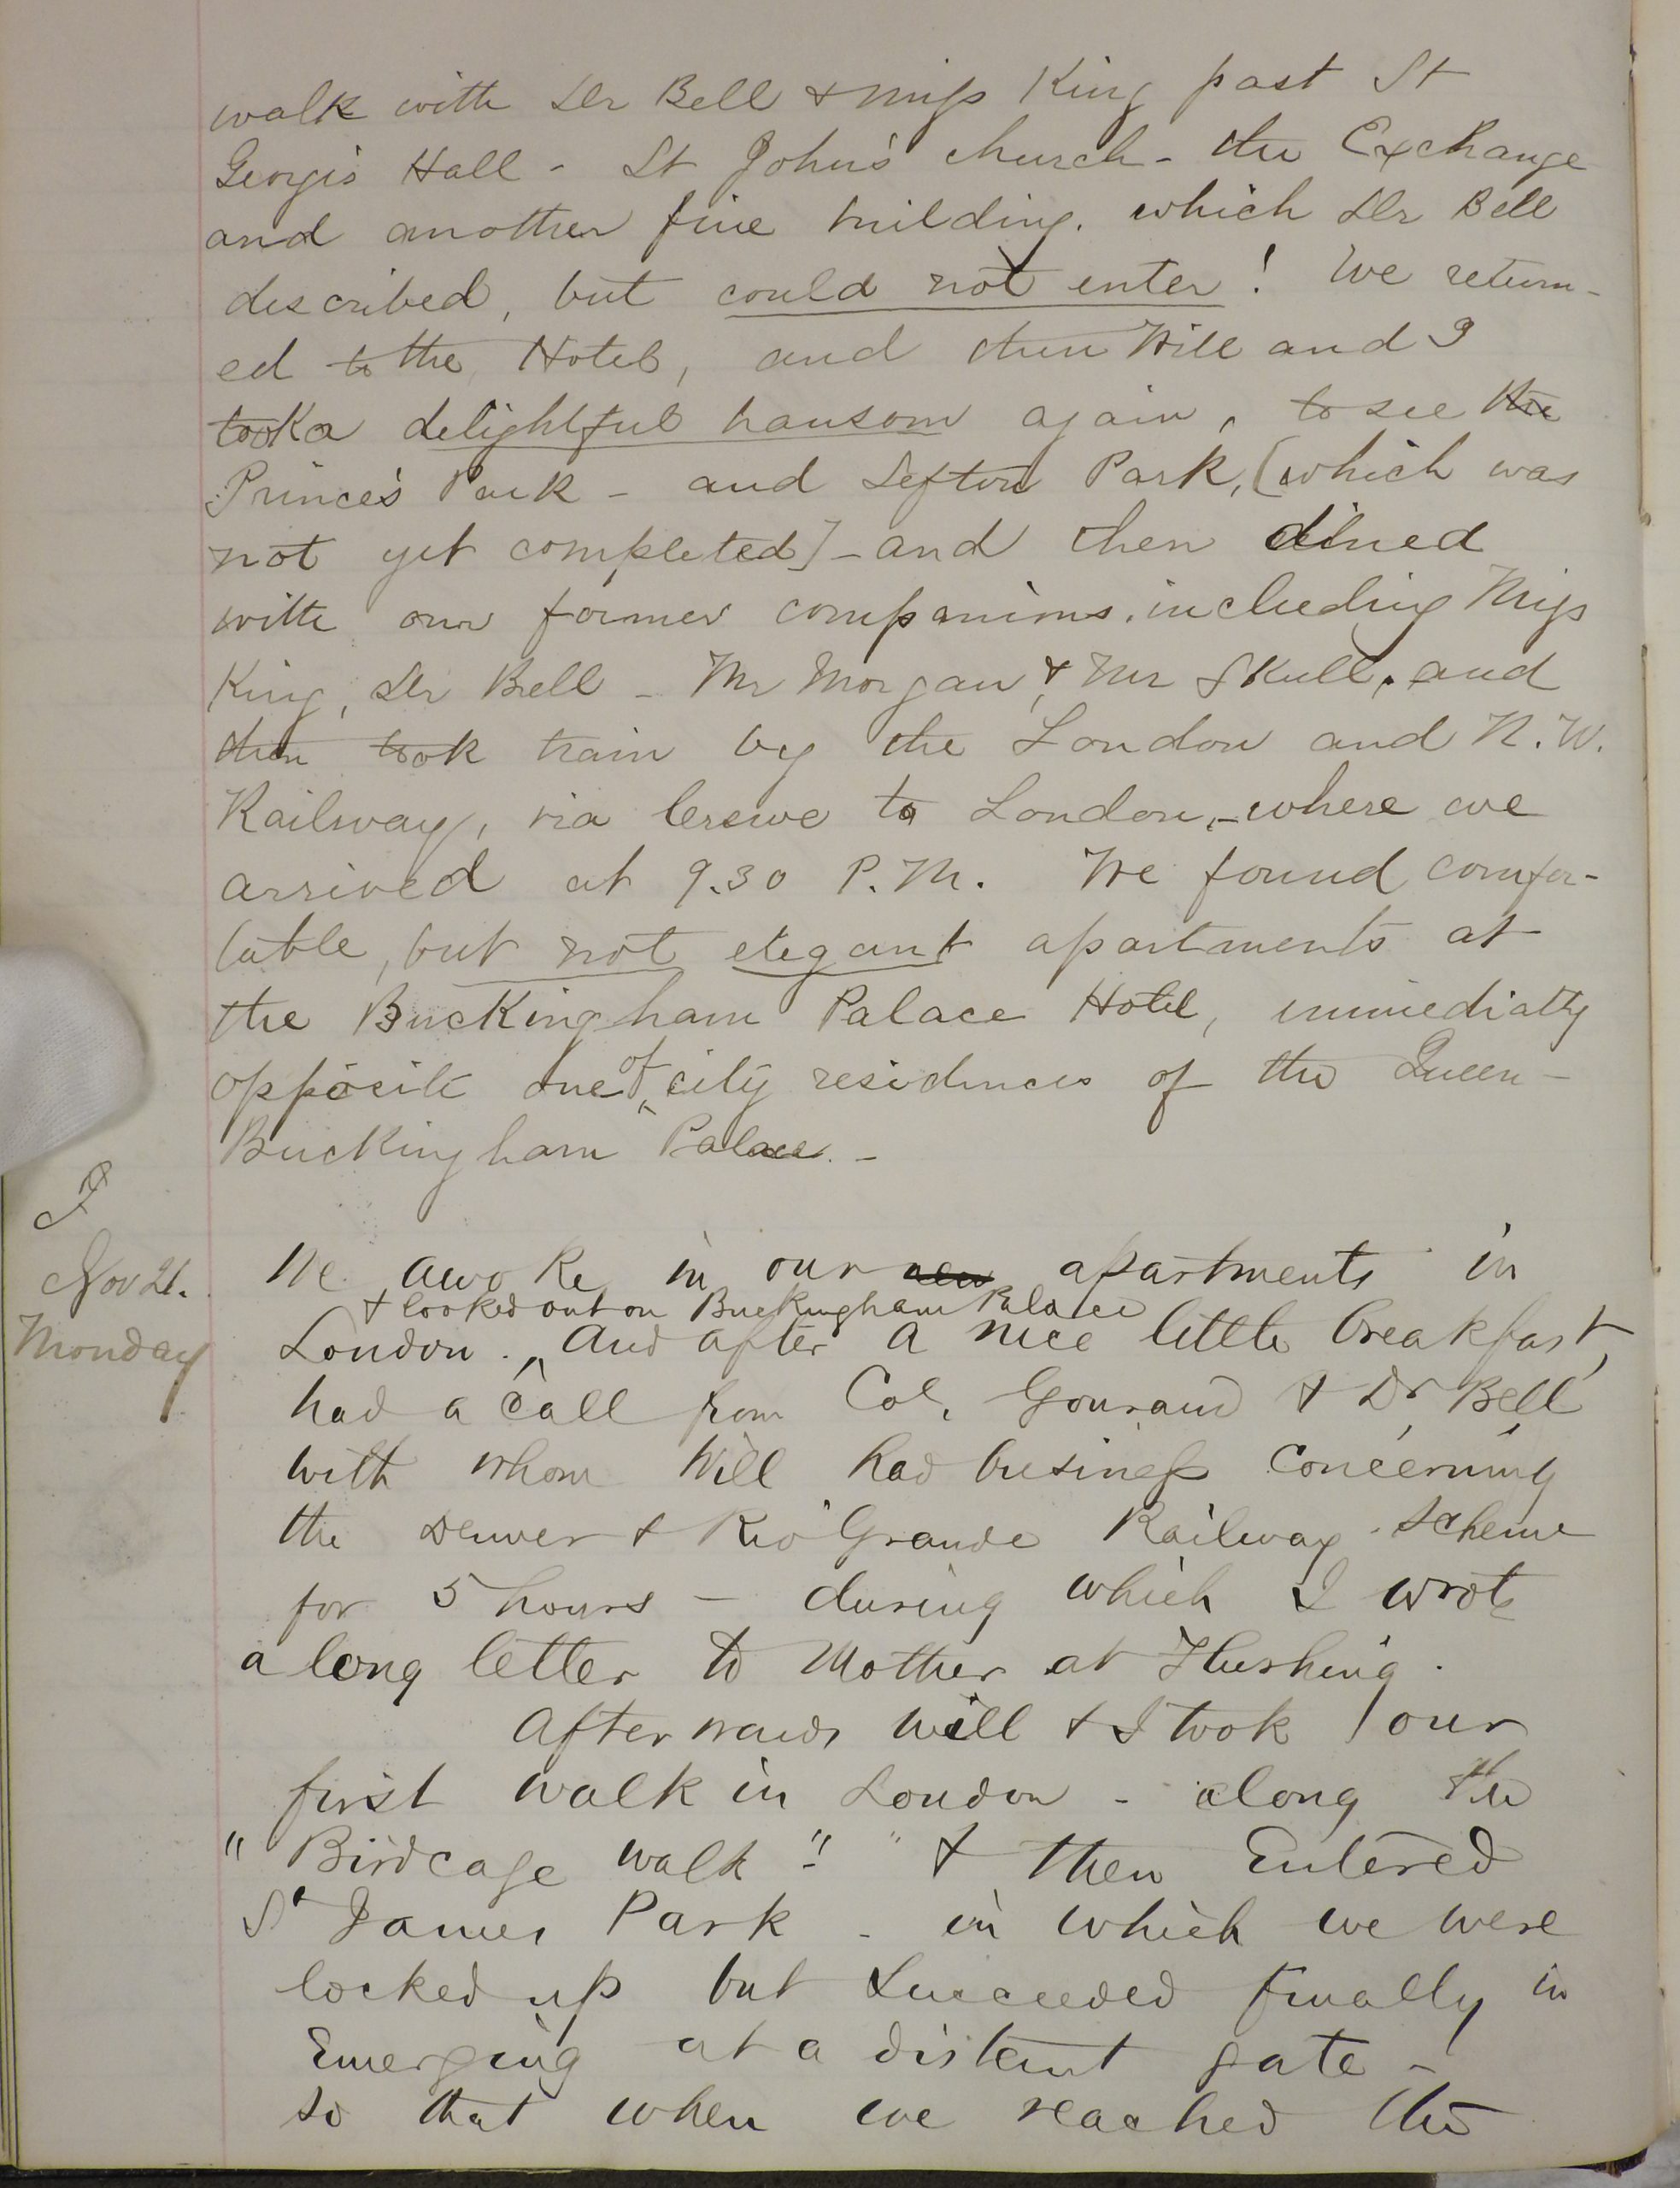 walk with Dr Bell & Miss King past St
Georges Hall - St John's church - the Exchange
and another fine building. which Dr Bell
described, but could not enter! We return-
ed to the Hotel, and then Will and I
took a delightful hansom again, to see the
Prince's Park - and Sefton Park, (which was
not yet completed] - and then dined
with our former companions. including Miss
King, Dr Bell - Mr Morgan & Mr Skull. and
then took train by the London and N.W.
Railway, via Crewe to London, - where we
arrived at 9.30 P.M. We found comfor-
table, but not elegant apartments at
the Buckingham Palace Hotel, immediatly
opposite one of city residences of the Queen -
Buckingham Palace. -
Nov 21.
Monday
We awoke in our new apartments in
& looked out on Buckingham Palace
London. And after a nice little breakfast,
had a call from Col. Gouraud & Dr Bell
with whom Will had business concerning
the Denver & Rio Grande Railway scheme
for 5 hours - during which I wrote
a long letter to Mother at Flushing.
Afterwards Will & I took our
first walk in London - along the
"Birdcage walk" - & then Entered
St James Park - in which we were
locked up but succeeded finally in
Emerging at a distant gate -
so that when we reached the